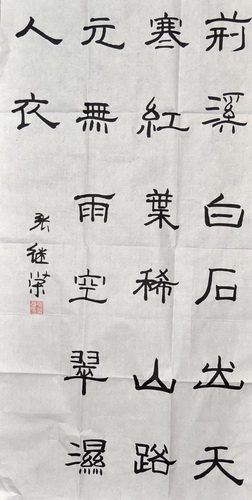 荊溪白石出天
寒紅葉稀山路
元無雨空翠濕
人衣
张继荣